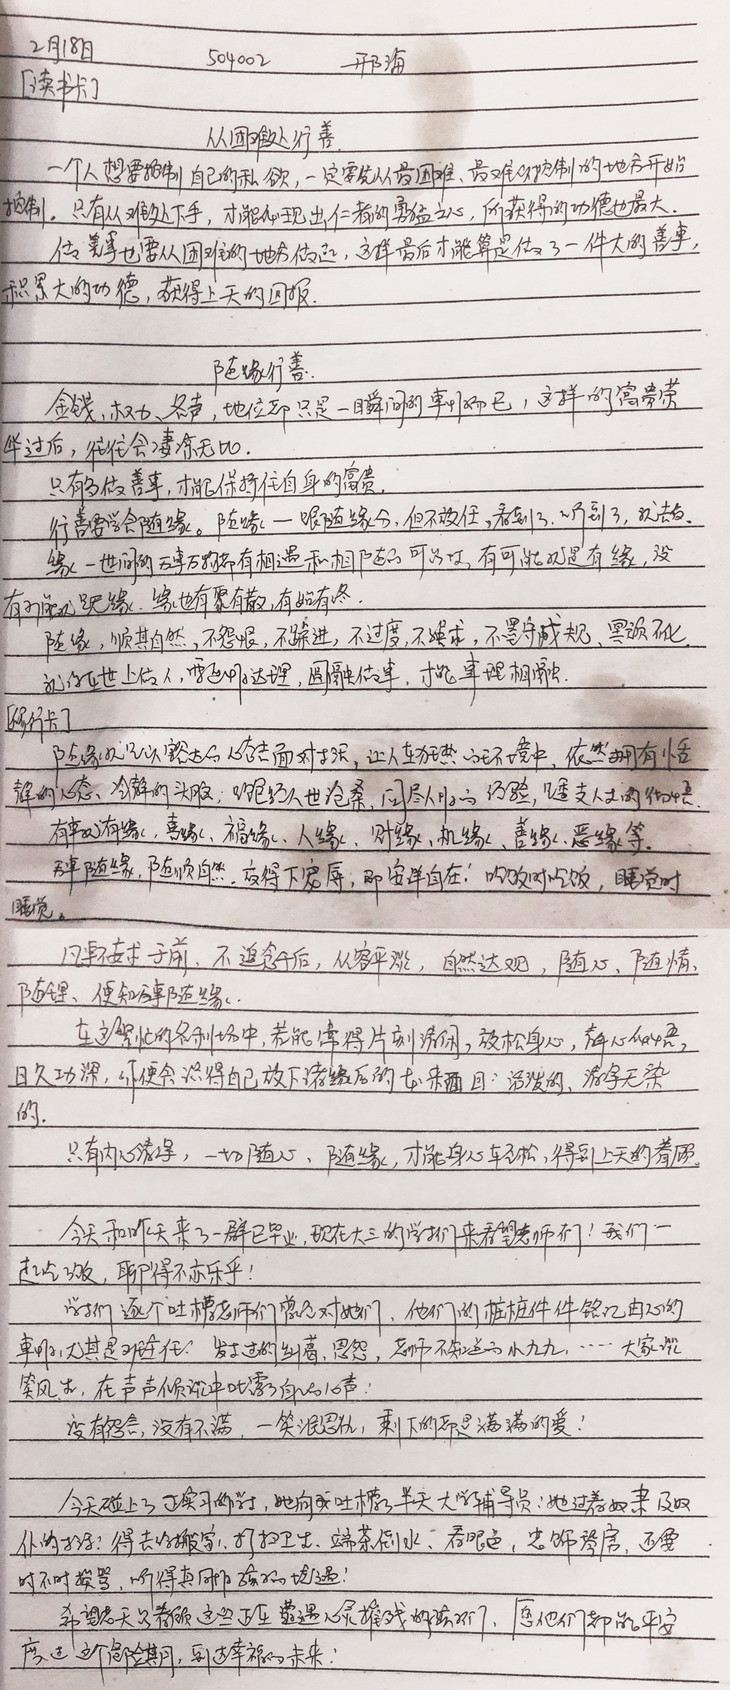 2月18日 504002 邢海
[读书卡]
从困难处行善.
一个人想要控制自己的私欲,一定要先从最困难、最难以控制的地方开始
控制。只有从难处下手,才能体现出仁者的勇猛之心,所获得的功德也最大.
做善事也要从困难的地方做起,这样最后才能算是做了一件大的善事,
积累大的功德,获得上天的回报.
随缘行善.
金钱、权力、名声,地位都只是一瞬间的事情而已,这样的富贵荣
华过后,往往会凄凉无比.
只有多做善事,才能保持住自身的富贵.
行善要学会随缘。随缘一跟随缘分,但不放任,看到了、听到了,就去做.
缘一世间的万事万物都有相遇和相随的可能性,有可能就是有缘,没
有可能就是无缘.缘也有聚有散,有始有终.
随缘,顺其自然,不怨恨,不躁进,不过度,不强求,不墨守成规、冥顽不化.
就像在世上做人,要通情达理,圆融做事,才能事理相融.
[修行卡]
随缘就是以豁达的心态面对生活,让人在狂热的环境中,依然拥有恬
静的心态、冷静的头脑;饱经人世沧桑、阅尽人情的经验,是透支人生的彻悟.
有事就有缘,喜缘、福缘、人缘、财缘、机缘、善缘、恶缘等.
万事随缘,随顺自然.放得下宠辱,即安详自在!吃饭时吃饭,睡觉时
睡觉。
凡事不妄求于前,不追念于后,从容平淡,自然达观,随心、随情、
随理、便知万事随缘.
在这繁忙的名利场中,若能常得片刻清闲,放松身心,静心体悟,
日久功深,你便会识得自己放下诸缘后的本来面目:活泼的、清净无染
的.
只有内心清净,一切随心、随缘,才能身心轻松,得到上天的眷顾.
今天和昨天来了一群已毕业,现在大三的学生们来看望老师们!我们一
起吃了饭,聊得不亦乐乎!
学生们逐个吐槽老师们曾经对她们、他们的桩桩件件铭记由心的
事情,尤其是班主任!发生过的纠葛、恩怨,老师不知道的小九九,……大家谈
笑风生,在声声倾诉中吐露了自己的心声!
没有怨言,没有不满,一笑泯恩仇,剩下的都是满满的爱!
今天碰上了正实习的学生,她向我吐槽了半天大学辅导员:她过着奴隶及奴
仆的生活!得去给搬家、打扫卫生、端茶倒水、看眼色,忠师赞房,还要
时不时挨骂,听得真同情孩的境遇!
希望老天多眷顾这些正在遭遇心灵摧残的孩子们,愿他们都能平安
度过这个危险期,到达幸福的未来!